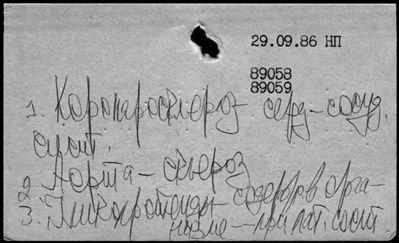 29.09.86 НП
89058
89059
1. Коронаросклероз - серд-сосуд.
сист.
2. Аорта - склероз
3. Гликопротеиды - здоров орга-
низме - при пат. сост